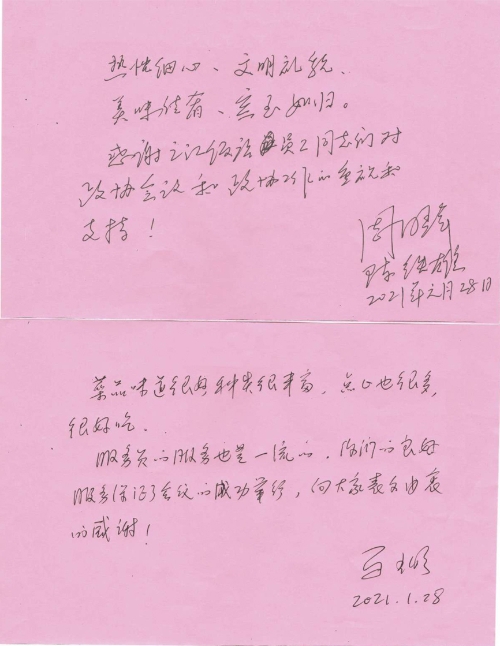 热忱细心、文明礼貌、
美味佳肴、宾至如归。
感谢之江饭店员工同志们对
政协会议和政协工作的重视和
支持!
2021年元月28日
菜品味道很好种类很丰富,点心也很多,
很好吃.
服务员的服务也是一流的,你们的良好
服务保证了会议的成功举行,向大家表示由衷
的感谢!
2021.1.28